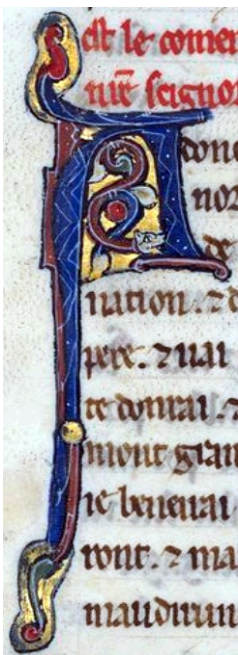 est le comen
nr̄e seignor
A dont
nor
de
nation. ⁊ d
pere. ⁊ uai
te donrai. ⁊
mout gran
ie beneurai
ront. ⁊ ma
maudirun